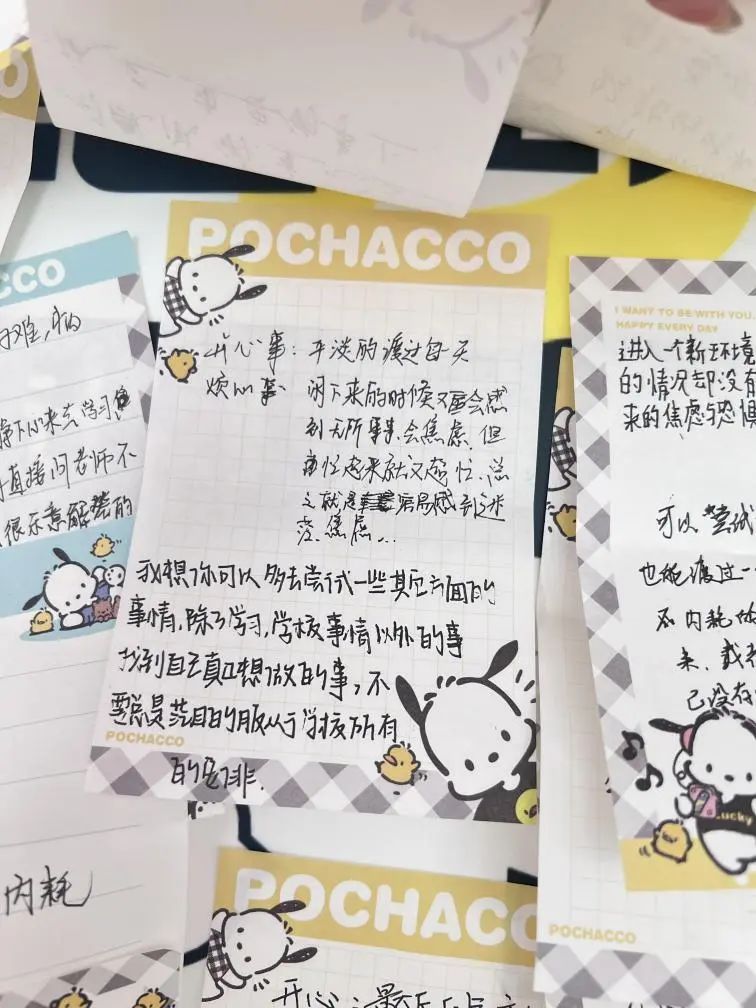 POCHACCO
开心事:平淡的渡过每一天
烦心事 闲下来的时候又会感
到无所事事,会焦虑,但
忙起来就又超忙,总
之就是 感到迷
茫、焦虑...
我想你可以多去尝试一些其它方面的
事情,除了学习,学校事情以外的事
找到自己真正想做的事,不
要总是茫目的服从于学校所有
的安排.
POCHACCO
CCO
难,怕
静下心来去学习
直接问老师不
很乐意解答的
内耗
I WANT TO BE WITH YOU.
HAPPY EVERY DAY
进入一个新环境
的情况却没有
来的焦虑与恐惧
可以尝试
也能渡过一
不内耗
来,我
已没在
Lucky
POCHACCO
POCHACCO
开心:最近